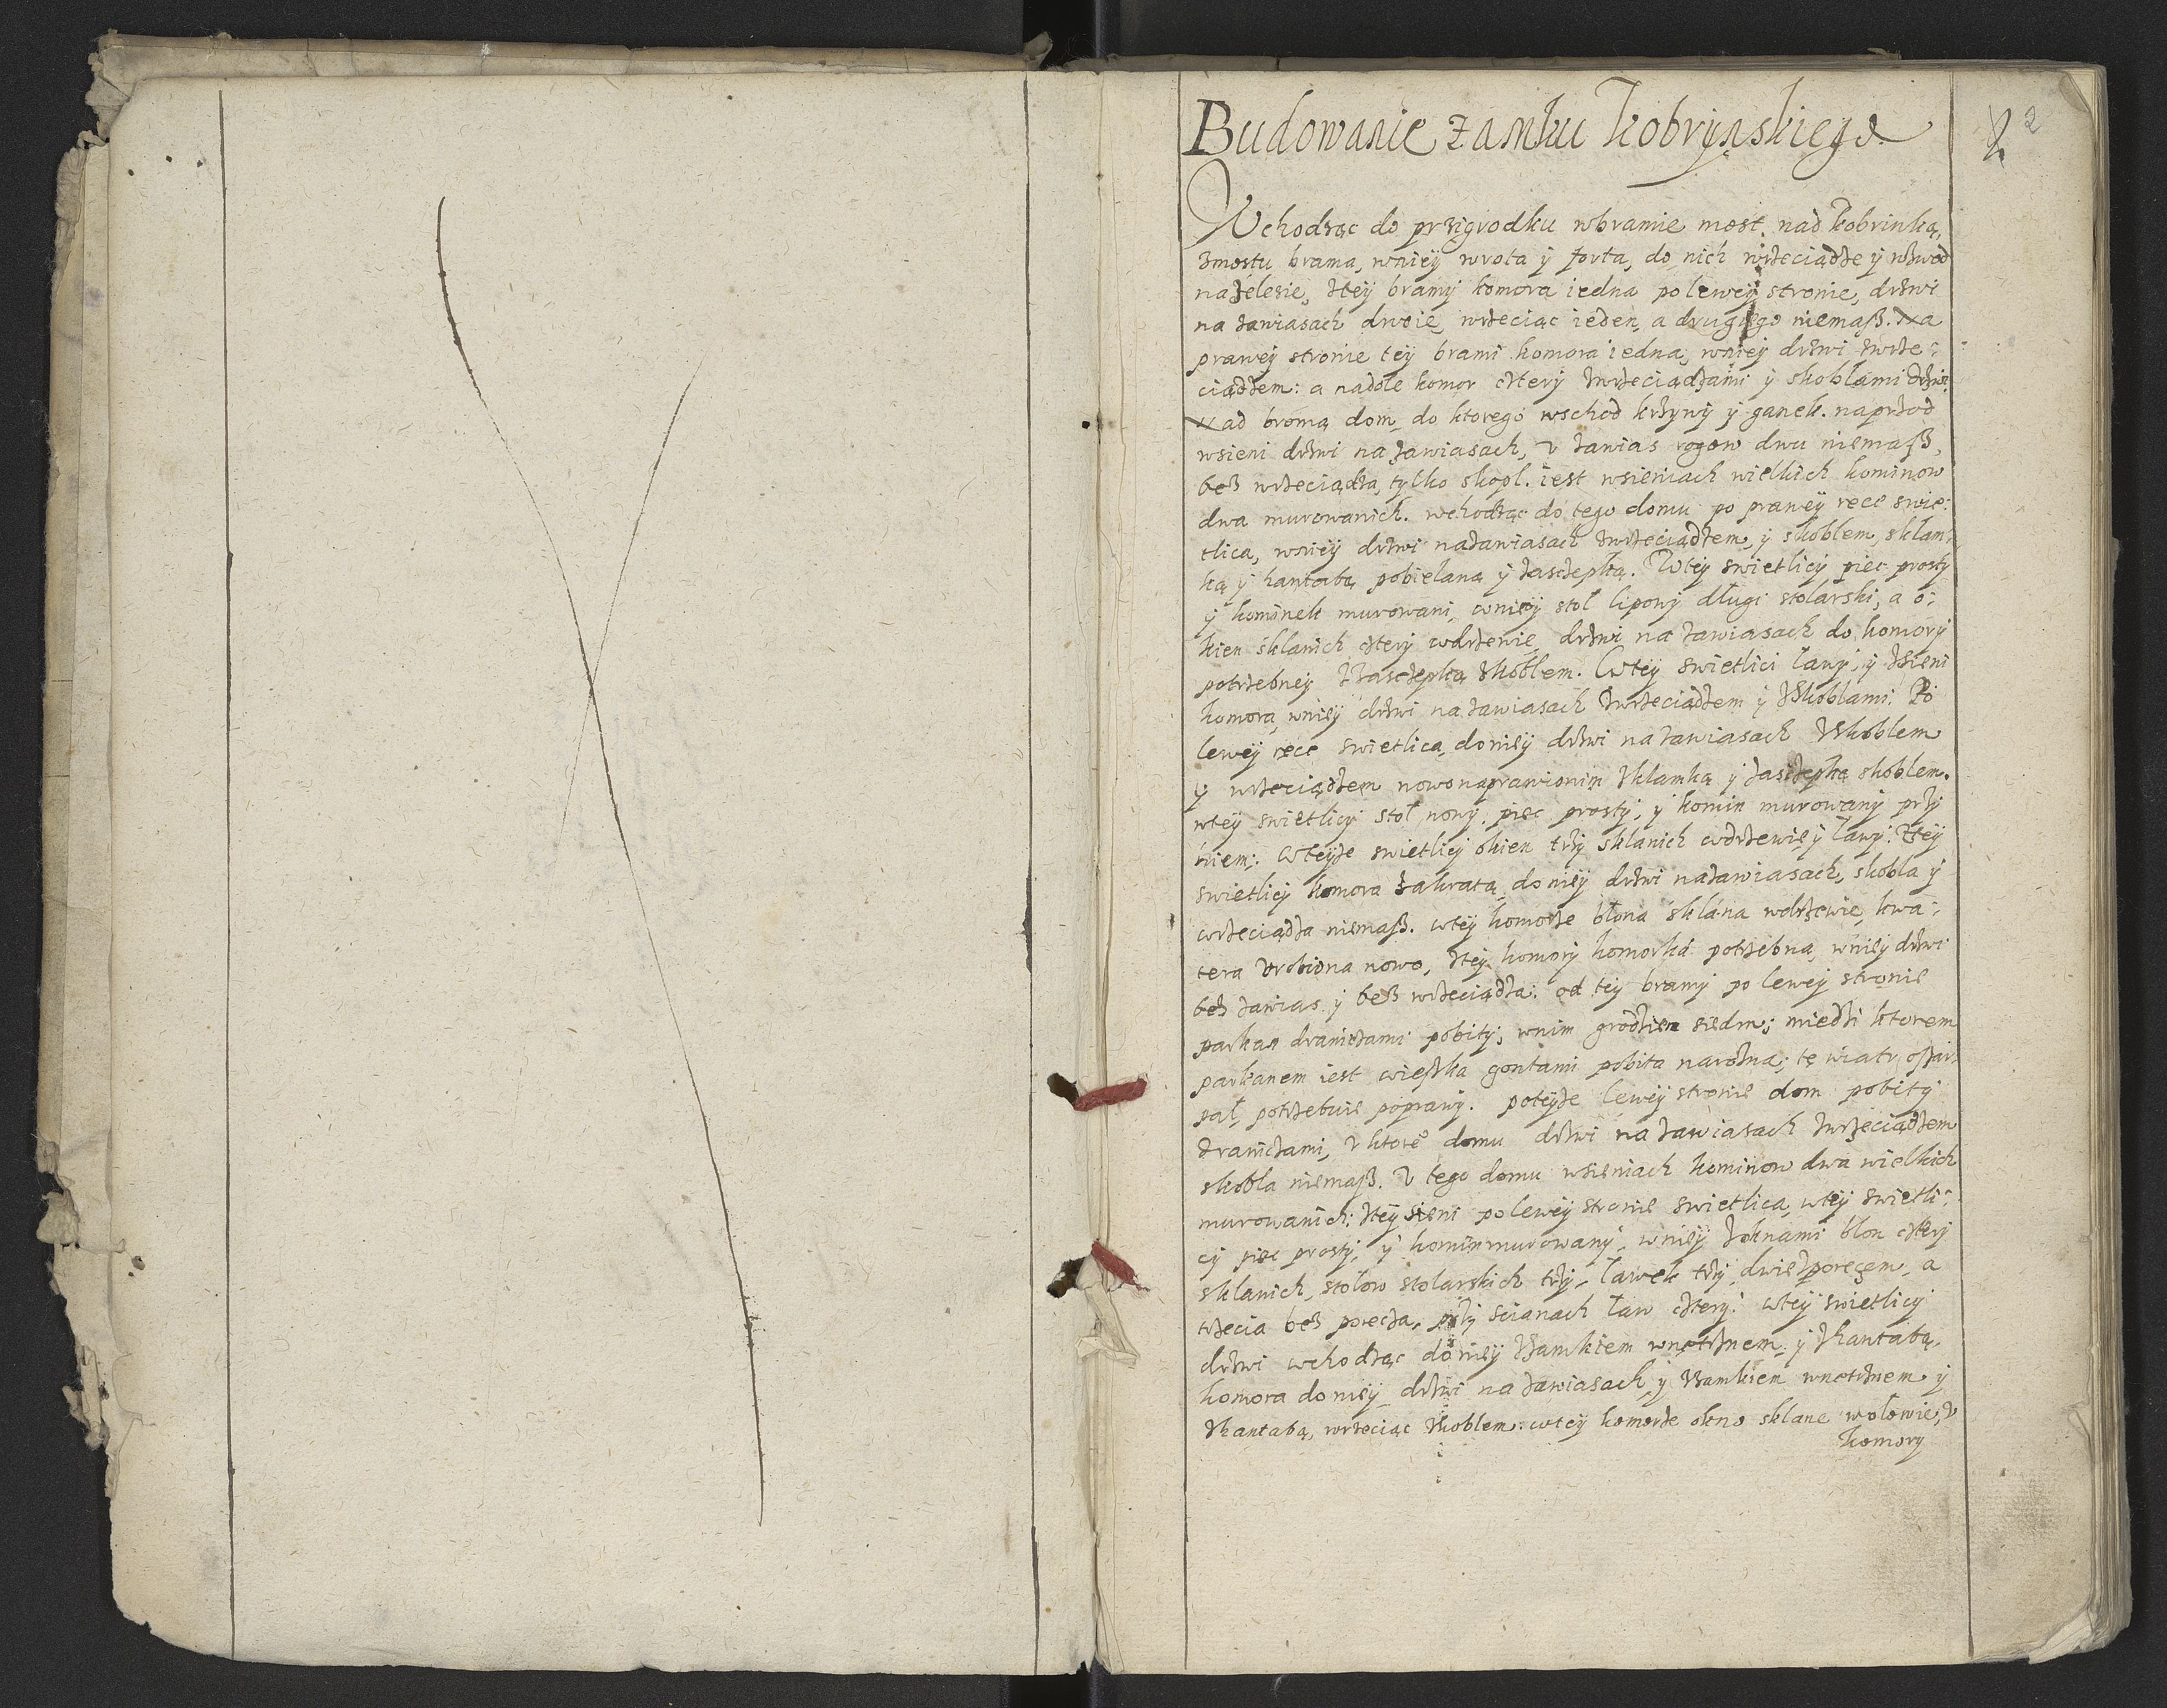 Budowanie zamku kobrynskiego
2
Wchodząc do przigrodku wbramie most nad kobrinką,
zmostu brama, wniey wrota ÿ forta, do nich wrzeciądze ÿ wzwod
nażelesie, zteÿ bramÿ komora iedna po leweÿ stronie, drzwi
na zawiasach dwoie, wrzeciąc ieden, a drugiego niemaß. Na
praweÿ stronie teÿ brami komora iedna, wnieÿ drzwi zwrze-
ciądzem: a nadole komor czterÿ zwrzeciądzami ÿ skoblami drzwi.
Nad bromą dom, do ktorego wschod krzywÿ ÿ ganek. naprzod
wsieni drzwi na zawiasach, v zawias rogow dwu niemaß,
beß wrzeciądza, tylko skopl. iest wsieniach wielkich kominow
dwa murowanich. wchodząc do tego domu po praweÿ rece swie-
tlica, wnieÿ drzwi nazawiasach zwrzeciądzem, ÿ skoblem, sklam-
ką ÿ hantabą pobielaną ÿ zasczepką. Wteÿ swietlicÿ piec prosty
ÿ kominek murowani, wnieÿ stol lipowÿ długi stolarski, a o-
kien sklanich czterÿ wdrzewie, drzwi na zawiasach do komorÿ
potrzebneÿ zzasczepką skoblem. Wteÿ swietlici ławÿ, ÿ zsieni
komora, wnieÿ drzwi na zawiasach zwrzeciądzem ÿ zskoblami. Po
leweÿ rece swietlica, do nieÿ drzwi na zawiasach zskoblem
ÿ wrzeciądzem nowo naprawionim zklamką ÿ zasczepką skoblem.
wteÿ swietlicÿ stoł nowÿ, piec prostÿ, ÿ komin murowanÿ przÿ
niem. Wteÿze swietlicÿ okien trzÿ sklanich wdrzewie ÿ ławÿ. Zteÿ
swietlicÿ komora zakratą, do nieÿ drzwi nazawiasach, skobla ÿ
wrzeciądza niemaß. wteÿ komorze błona sklana wdrzewie, kwa-
tera vrobiona nowo, zteÿ komorÿ komorka potrzebna, wnieÿ drzwi
beß zawias ÿ beß wrzeciądza: od teÿ bramÿ po leweÿ stronie
parkan dranicżami pobitÿ, wnim grodzien siedm, miedzi ktorem
parkanem iest wieszka gontami pobita narozna, tę wiatr oszar-
pał, potrzebuie poprawÿ. poteÿze leweÿ stronie dom pobitÿ
dranicżami, v ktoreº domu drzwi na zawiasach zwrzeciądzem
skobla niemaß. V tego domu wsieniach kominow dwa wielkich
murowanich: zteÿ sieni po leweÿ stronie swietlica, wteÿ swietli-
cÿ piec prostÿ, ÿ komin murowanÿ, wnieÿ zoknami błon czterÿ
sklanich, stolow stolarskich trzÿ, ławek trzÿ, dwie zporęcem, a
trzecia beß porecza, przÿ scianach ław czterÿ. wteÿ swietlicÿ
drzwi wchodząc do nieÿ zzamkiem wnętrznem, ÿ zhantabą,
komora do nieÿ drzwi na zawiasach ÿ zzamkiem wnetrznem ÿ
zhantabą, wrzeciąc zskoblem: wteÿ komorze okno sklane wołowie, v
komory